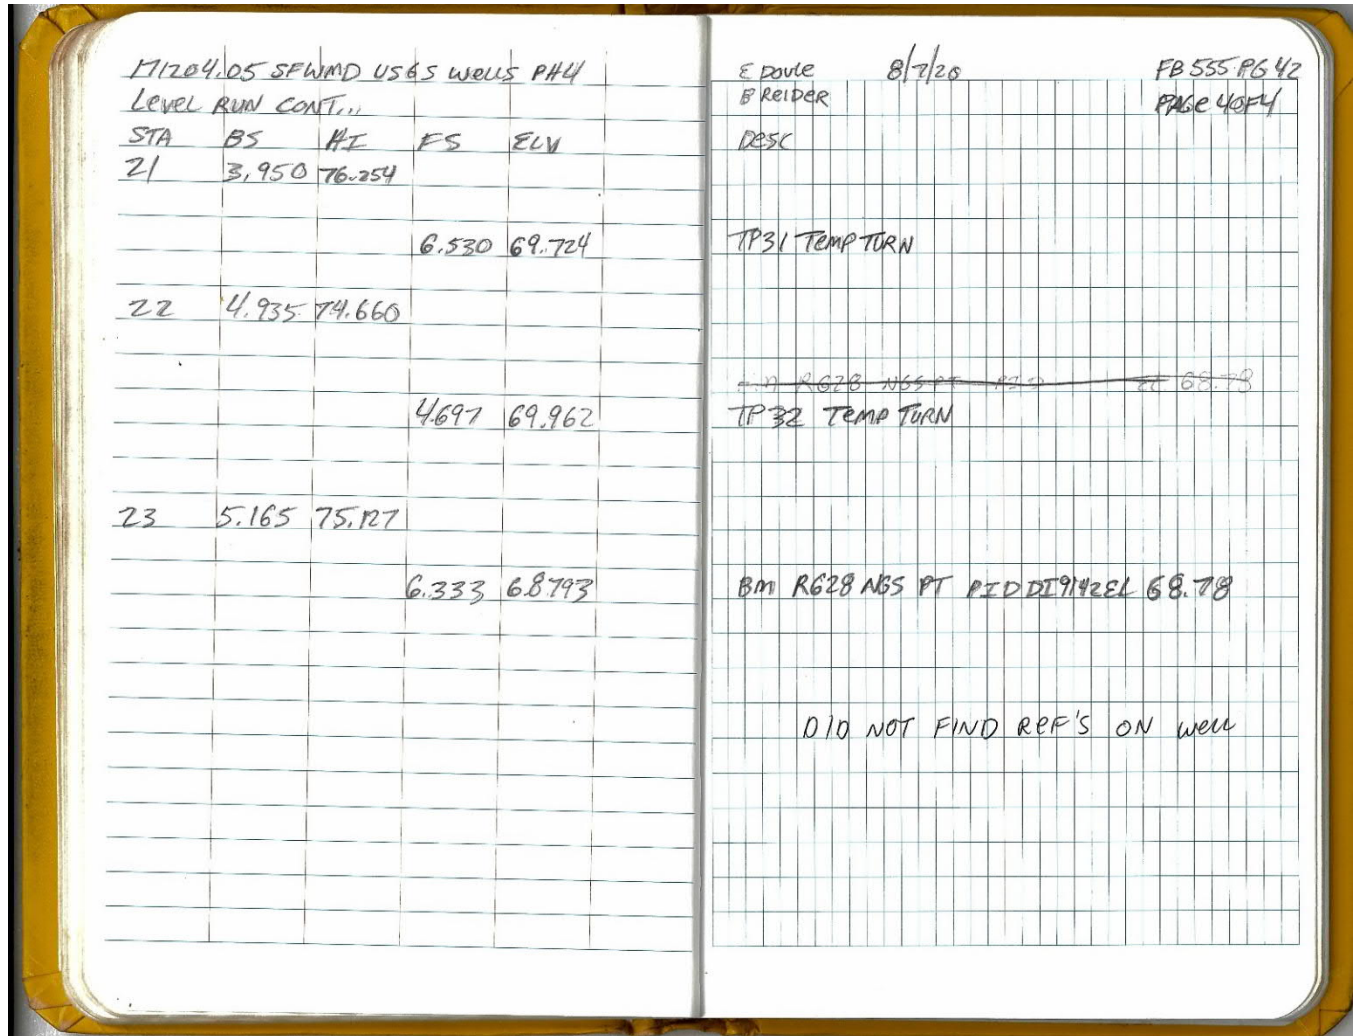 171204.05 SFWMD USGS wells PH4
Level RUN CONT...
STA BS HI FS ELV
21 3,950 76.254
6.530 69.724
22 4.935 74.660
4.697 69.962
23 5.165 75.127
6.333 68.793
E DOYLE 8/7/20 FB 555 PG 42
B REIDER PAGE 4 OF 4
DESC
TP31 TEMP TURN
R628 NGS PT PID 68.78
TP32 TEMP TURN
BM R628 NGS PT PID DI9142 EL 68.78
DID NOT FIND REF'S ON well